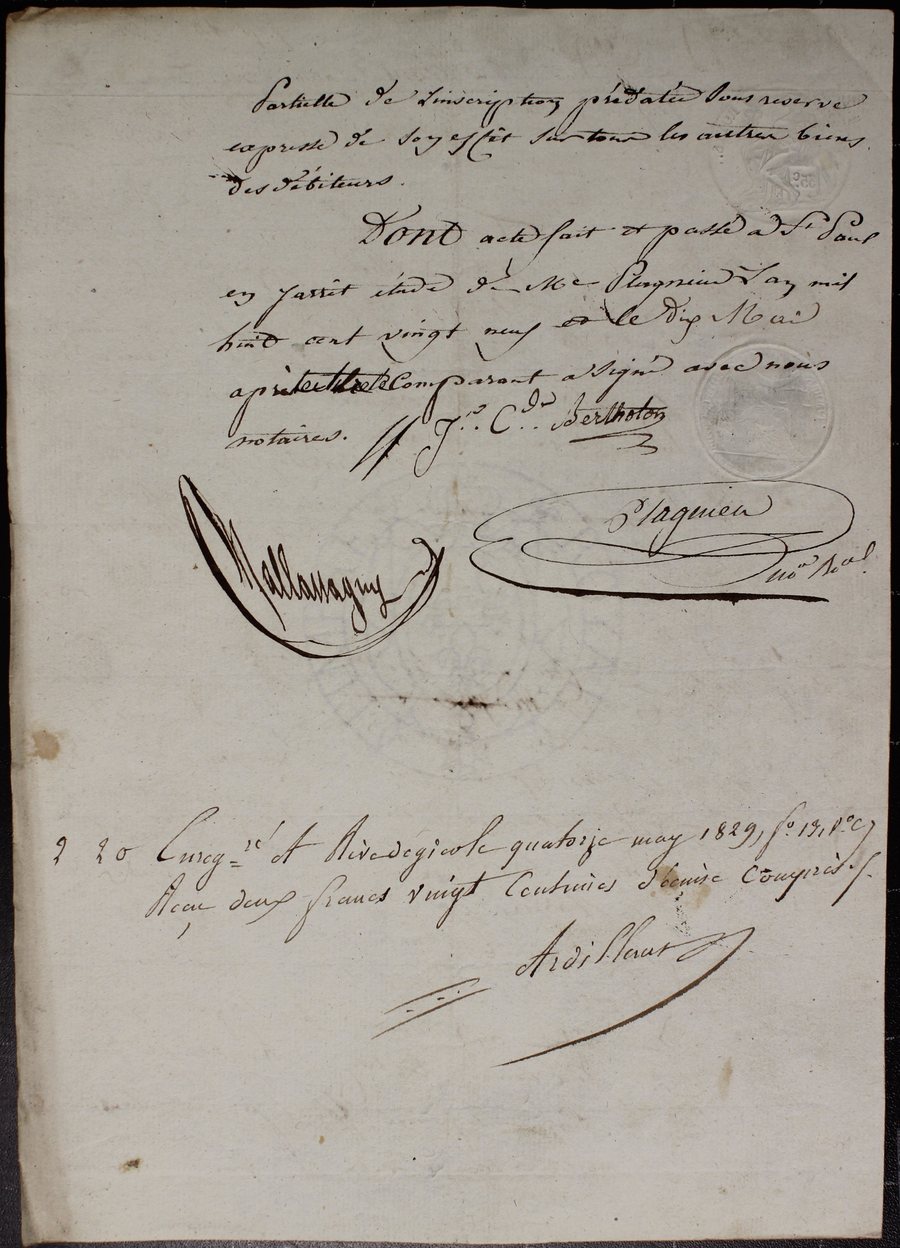 partielle de l'inscription prédatée sous reserve
expresse de son effet sur tous les autres biens
des débiteurs.
Dont acte fait et passé a St Paul
en jarret étude de Me Plagnieu L'an mil
huit cent vingt neuf le dix Mai
après Comparant a signé avec nous
notaires. // Jn. Cde. Bertholon
Plagnieu
nore Royal
2 20 Enreg-ré A Rivedegier le quatorze may 1829, fo. 13, Vo. C 7
Reçu deux francs vingt Centimes décime Compris
Ardilleret